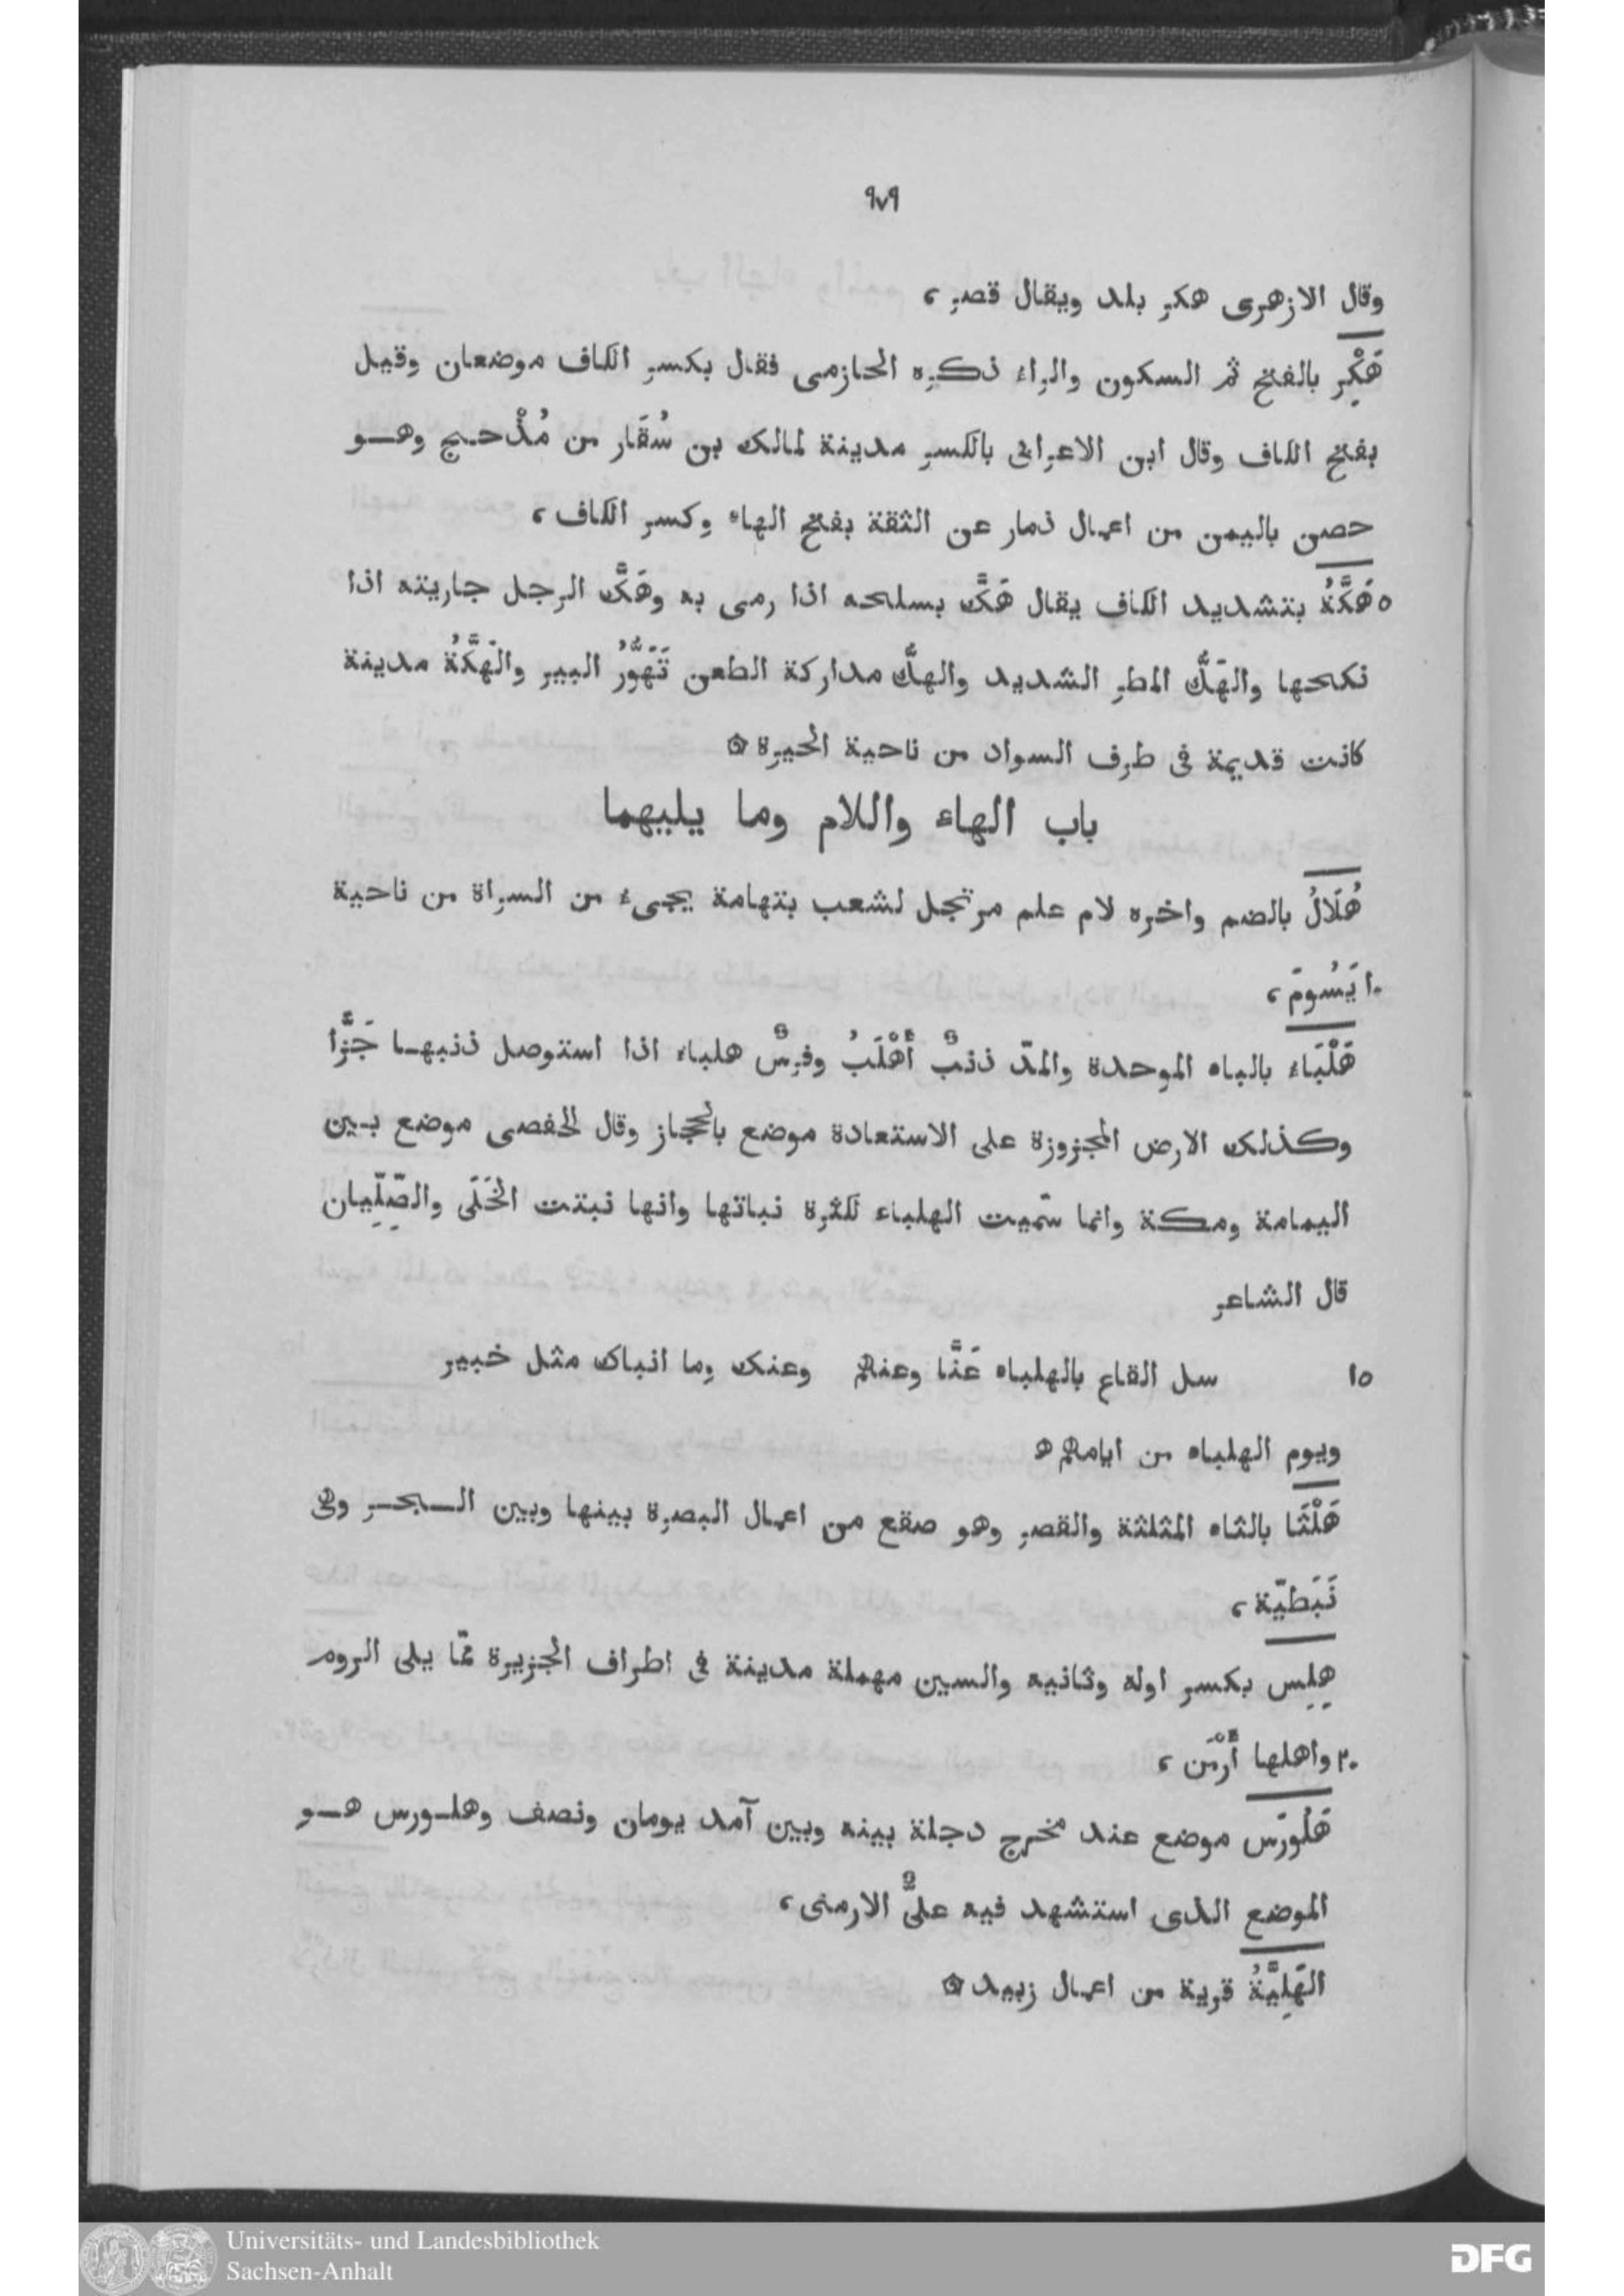 ٩٧٩
وقال الازهرى هكر بلد ويقال قصر ،
هَكْرِ بالفتح ثم السكون والراء ذكره الحازمى فقال بكسر الكاف موضعان وقيل
بفتح الكاف وقال ابن الاعرابى بالكسر مدينة لمالك بن سُقَار من مُذْحـج وهـو
حصن باليمن من اعمال ذمار عن الثقة بفتح الهاء وكسر الكاف ،
٥ هَكَّةُ بتشديد الكاف يقال هَكَّ بسلحه اذا رمى به وهَكَّ الرجل جاريته اذا
نكحها والهَكُّ المطر الشديد والهكُّ مداركة الطعن تَهَوُّرُ البير والهَكَّةُ مدينة
كانت قديمة فى طرف السواد من ناحية الحيرة ۞
باب الهاء واللام وما يليهما
هُلَالُ بالضم واخره لام علم مرتجل لشعب بتهامة يجىء من السراة من ناحية
١٠ يَسُومَ ،
هَلْبَاء بالباء الموحدة والمدّ ذنبٌ أَهْلَبُ وفرسٌ هلباء اذا استوصل ذنبهـا جَزًّا
وكذلك الارض المجزوزة على الاستعادة موضع بالحجاز وقال الحفصى موضع بـين
اليمامة ومكة وانما سمّيت الهلباء لكثرة نباتها وانها نبتت الخَلَى والصِّلِّيان
قال الشاعر
١٥ سل القاع بالهلباء عَنَّا وعنهم وعنك وما انباك مثل خبير
ويوم الهلباء من ايامهم ۞
هَلْثَا بالثاء المثلثة والقصر وهو صقع من اعمال البصرة بينها وبين الـبحـر وهى
نَبَطيّة ،
هِلِس بكسر اوله وثانيه والسين مهملة مدينة فى اطراف الجزيرة ممّا يلى الروم
٢٠ واهلها أَرْمَن ،
هَلُورَس موضع عند مخرج دجلة بينه وبين آمد يومان ونصف وهلـورس هـو
الموضع الذى استشهد فيه علىٌّ الارمنى ،
الهَلِيَّةُ قرية من اعمال زبيد ۞
Universitäts- und Landesbibliothek
Sachsen-Anhalt
DFG